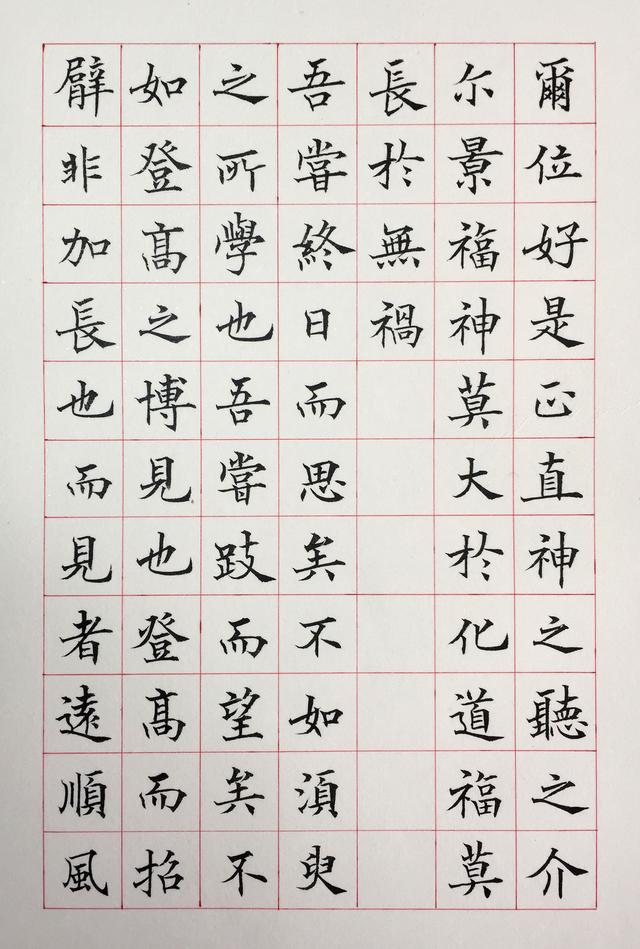 爾位好是正直神之聽之介
尔景福神莫大於化道福莫
長於無禍
吾嘗終日而思矣不如須臾
之所學也吾嘗跂而望矣不
如登高之博見也登高而招
臂非加長也而見者遠順風